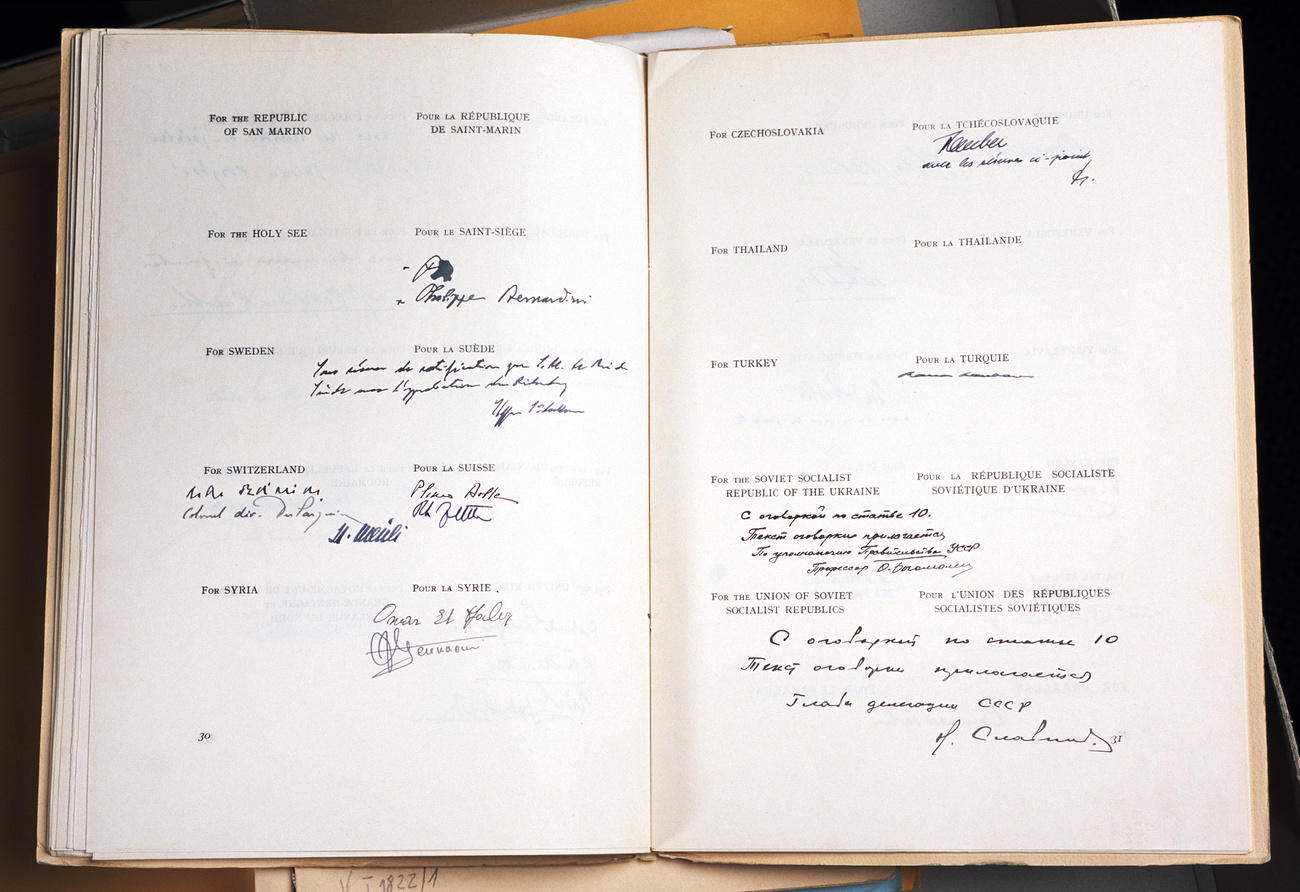 FOR THE REPUBLIC OF SAN MARINO
POUR LA RÉPUBLIQUE DE SAINT-MARIN
FOR THE HOLY SEE
POUR LE SAINT-SIÈGE
Philippe Bernardini
FOR SWEDEN
POUR LA SUÈDE
Sous réserve de ratification par S.M. le Roi de
Suède avec l'approbation du Riksdag
FOR SWITZERLAND
POUR LA SUISSE
Plinio Bolla
Colonel div. Du Pasquier
H. Meuli
FOR SYRIA
POUR LA SYRIE.
Omar El
30
FOR CZECHOSLOVAKIA
POUR LA TCHÉCOSLOVAQUIE
Tauber
avec les réserves ci-joint
FOR THAILAND
POUR LA THAÏLANDE
FOR TURKEY
POUR LA TURQUIE
FOR THE SOVIET SOCIALIST
REPUBLIC OF THE UKRAINE
POUR LA RÉPUBLIQUE SOCIALISTE
SOVIÉTIQUE D'UKRAINE
С оговоркой по статье 10.
Текст оговорки прилагается
По уполномочию Правительства УССР
Профессор О. Богомолец
FOR THE UNION OF SOVIET
SOCIALIST REPUBLICS
POUR L'UNION DES RÉPUBLIQUES
SOCIALISTES SOVIÉTIQUES
С оговоркой по статье 10
Текст оговорки прилагается
Глава делегации СССР
Н. Славин.
31
V I 1822/1